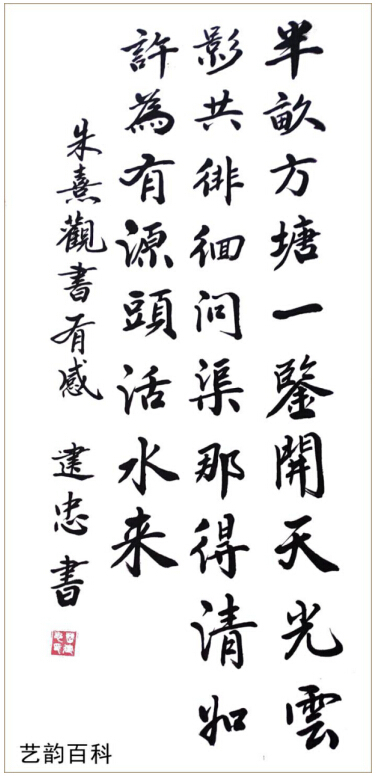 半畝方塘一鑒開天光雲
影共徘徊问渠那得清如
許為有源頭活水来
朱熹觀書有感 建忠書
艺韵百科